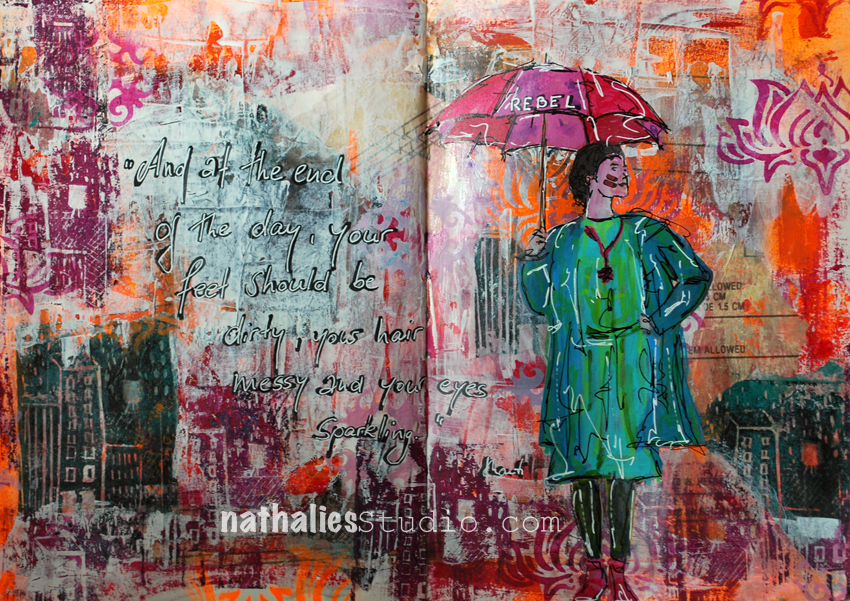 "And at the end
of the day, your
feet should be
dirty, your hair
messy and your eyes
sparkling."
REBEL
LLOWED
CM
DE 1.5 CM
EM ALLOWED
nathaliesstudio.com